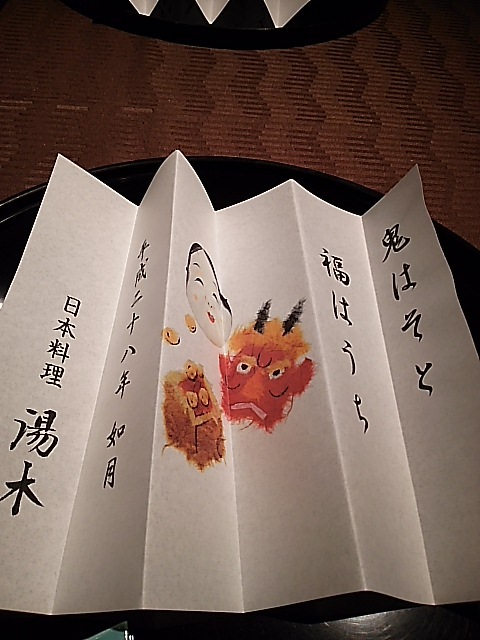 鬼はそと
福はうち
平成二十八年 如月
日本料理 湯木